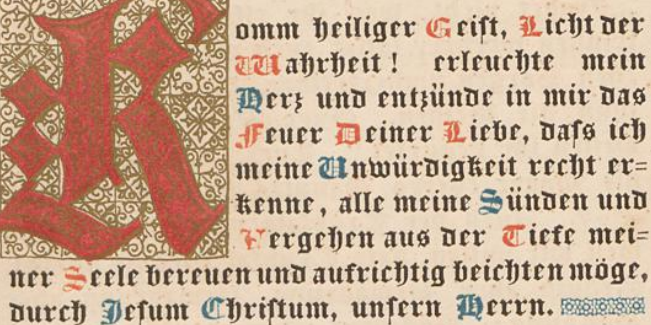 Komm heiliger Geiſt, Licht der
Wahrheit! erleuchte mein
Herz und entzünde in mir das
Feuer Deiner Liebe, daſs ich
meine Unwürdigkeit recht er=
kenne, alle meine Sünden und
Vergehen aus der Tiefe mei=
ner Seele bereuen und aufrichtig beichten möge,
durch Jeſum Chriſtum, unſern Herrn.